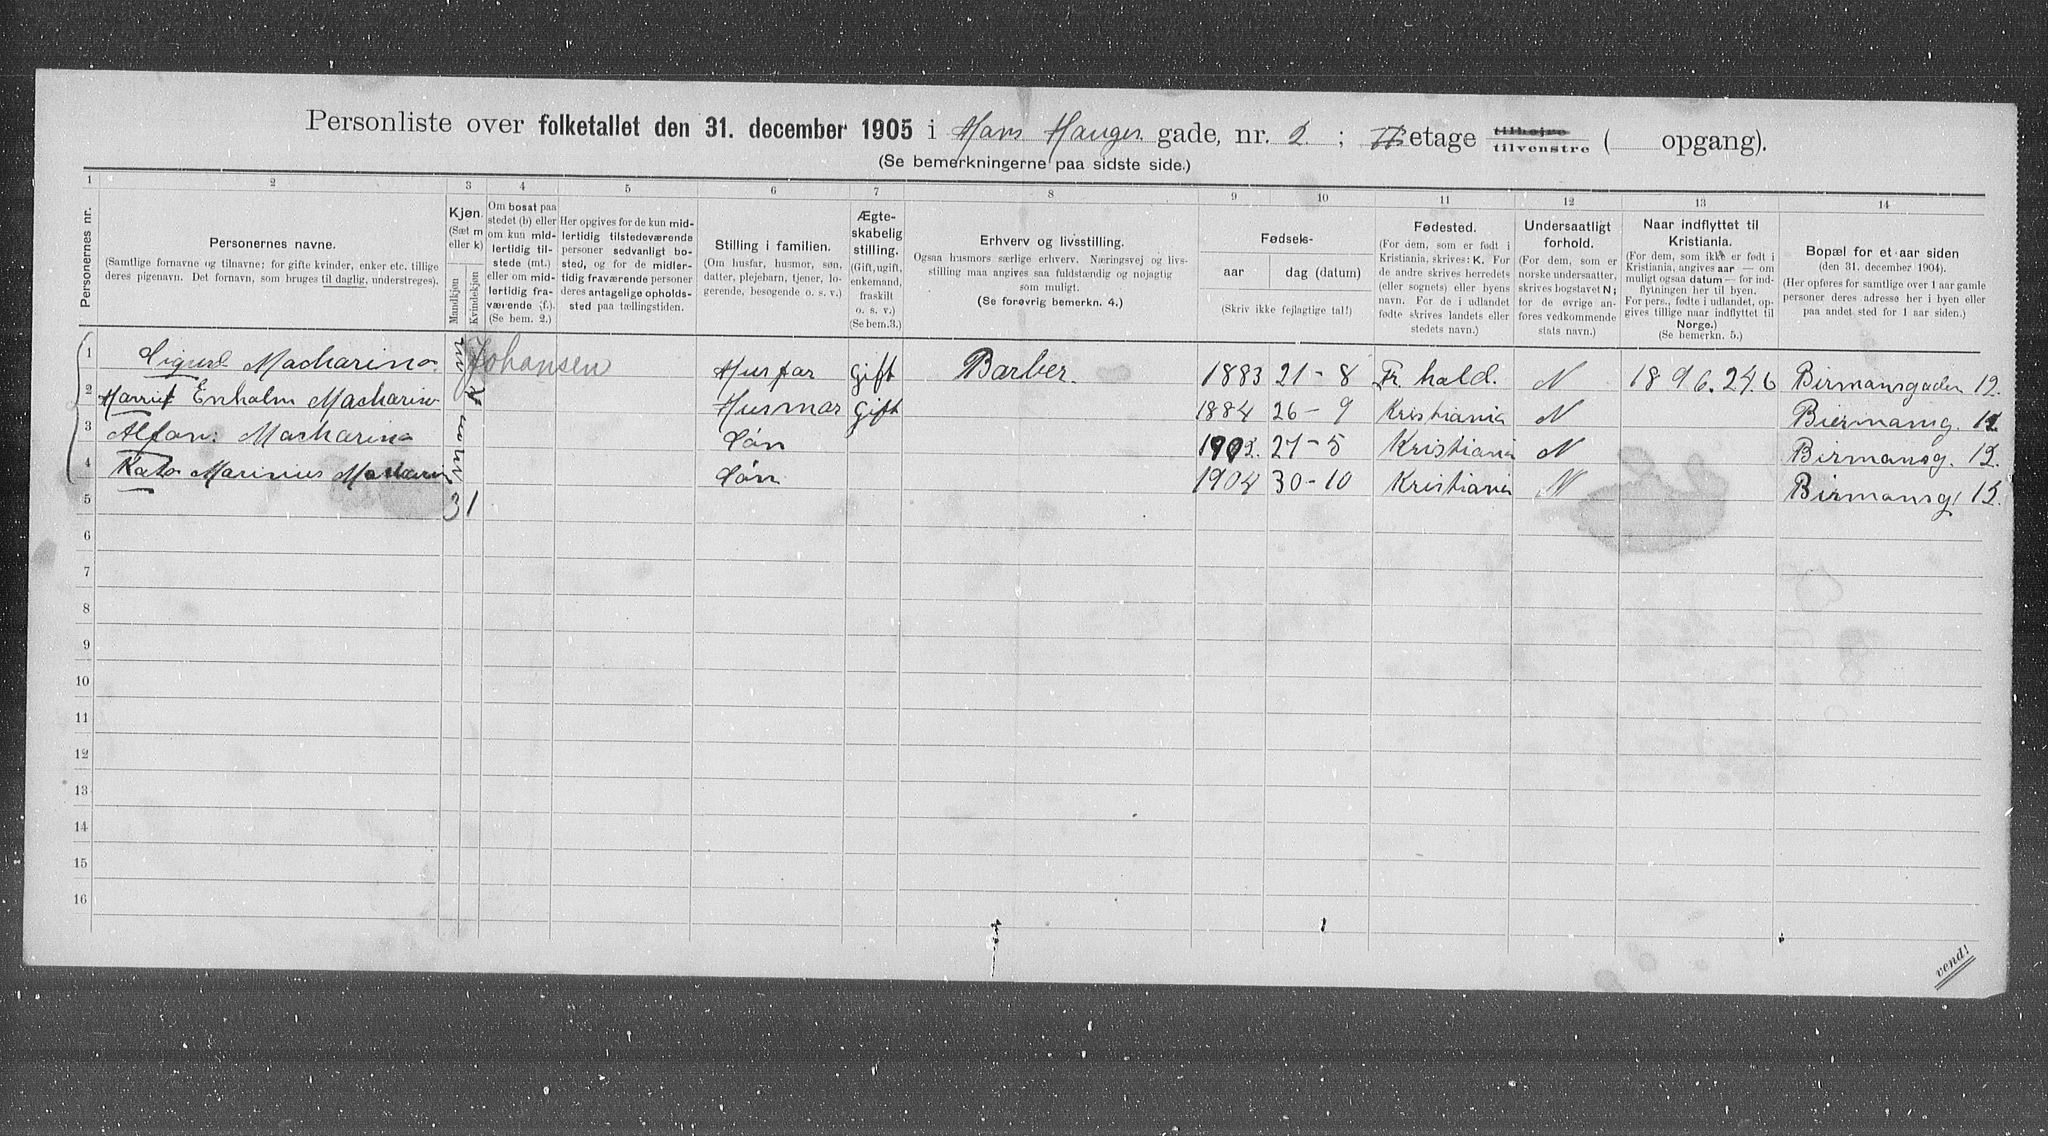 Personliste over folketallet den 31. december 1905 i Hans Hauges gade, nr. 2 ; II etage tilhøjre tilvenstre ( opgang).
(Se bemerkningerne paa sidste side.)
1 2 3 4 5 6 7 8 9 10 11 12 13 14
Personernes nr.
Personernes navne.
(Samtlige fornavne og tilnavne; for gifte kvinder, enker etc. tillige deres pigenavn. Det fornavn, som bruges til daglig, understreges).
Kjøn.
(Sæt m eller k)
Mandkjøn
Kvindekjøn
Om bosat paa stedet (b) eller om kun midlertidig tilstede (mt.) eller om midlertidig fraværende (f.). (Se bem. 2.)
Her opgives for de kun midlertidig tilstedeværende personer sedvanligt bosted, og for de midlertidig fraværende personer deres antagelige opholdssted paa tællingstiden.
Stilling i familien.
(Om husfar, husmor, søn, datter, plejebarn, tjener, logerende, besøgende o. s. v.)
Ægteskabelig stilling.
(Gift, ugift, enkemand, fraskilt o. s. v.)
(Se bem.3.)
Erhverv og livsstilling.
Ogsaa husmors særlige erhverv. Næringsvej og livsstilling maa angives saa fuldstændig og nøjagtig som muligt.
(Se forøvrig bemerkn. 4.)
Fødsels-
aar
dag (datum)
(Skriv ikke fejlagtige tal!)
Fødested.
(For dem, som er født i Kristiania, skrives: K. For de andre skrives herredets (eller sognets) eller byens navn. For de i udlandet fødte skrives landets eller stedets navn.)
Undersaatligt forhold.
(For dem, som er norske undersaatter, skrives bogstavet N; for de øvrige anføres vedkommende stats navn.)
Naar indflyttet til Kristiania.
(For dem, som ikke er født i Kristiania, angives aar — om muligt ogsaa datum — for indflytningen her til byen. For pers., født i udlandet, opgives tillige naar indflyttet til Norge.)
(Se bemerkn. 5.)
Bopæl for et aar siden
(den 31. december 1904).
(Her opføres for samtlige over 1 aar gamle personer deres adresse her i byen eller paa andet sted for 1 aar siden.)
1 Sigurd Macharino m Johansen Husfar Gift Barber. 1883 21-8 Fr. hald. N 1896.24.6 Birmansgaden 12.
2 Harriet Enholm Macharino k Husmor Gift 1884 26-9 Kristiania N Biermansg. 12
3 Alfon: Macharino m Søn 1902. 27-5 Kristiania N Birmansg. 12.
4 Kato Marinius Macharin m Søn 1904 30-10 Kristiania N Birmansg. 12.
5 3 1
6
7
8
9
10
11
12
13
14
15
16
vend!